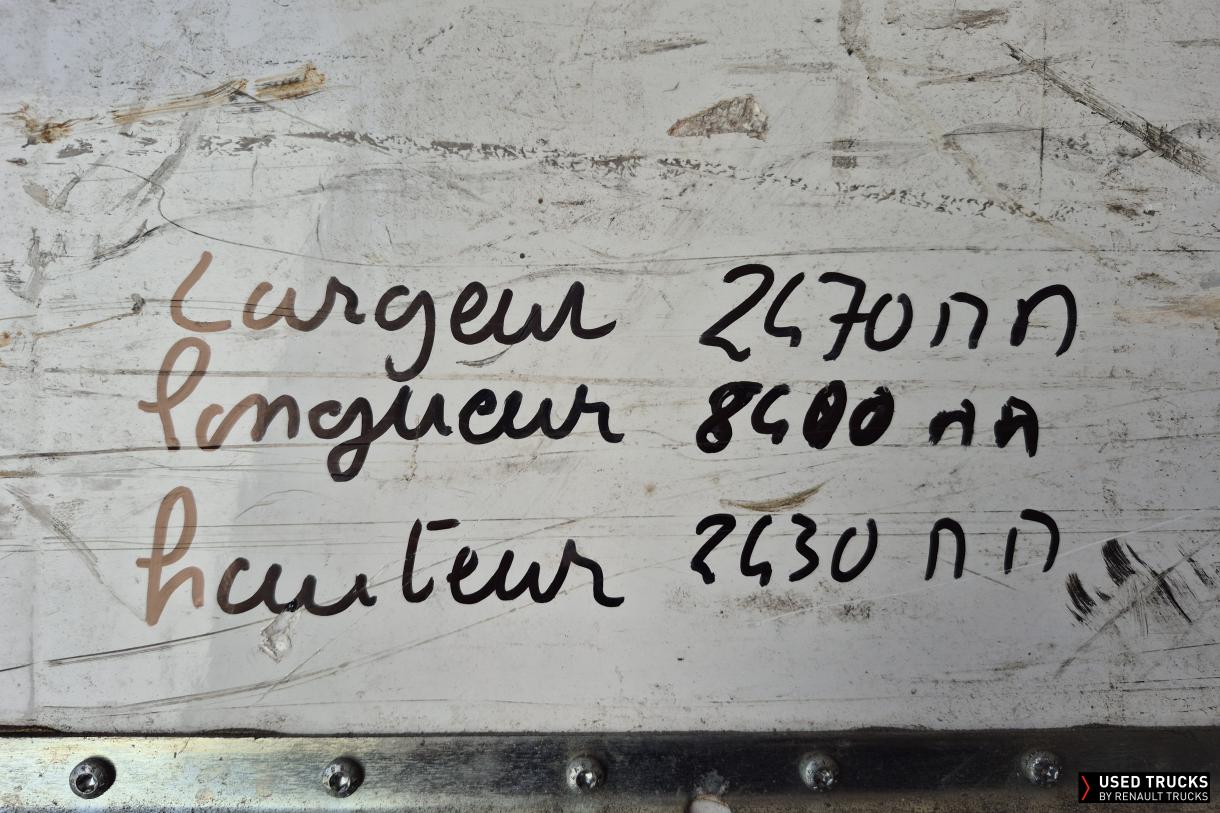 Largeur 2470 mm
longueur 8400 mm
hauteur 2430 mm
USED TRUCKS
BY RENAULT TRUCKS